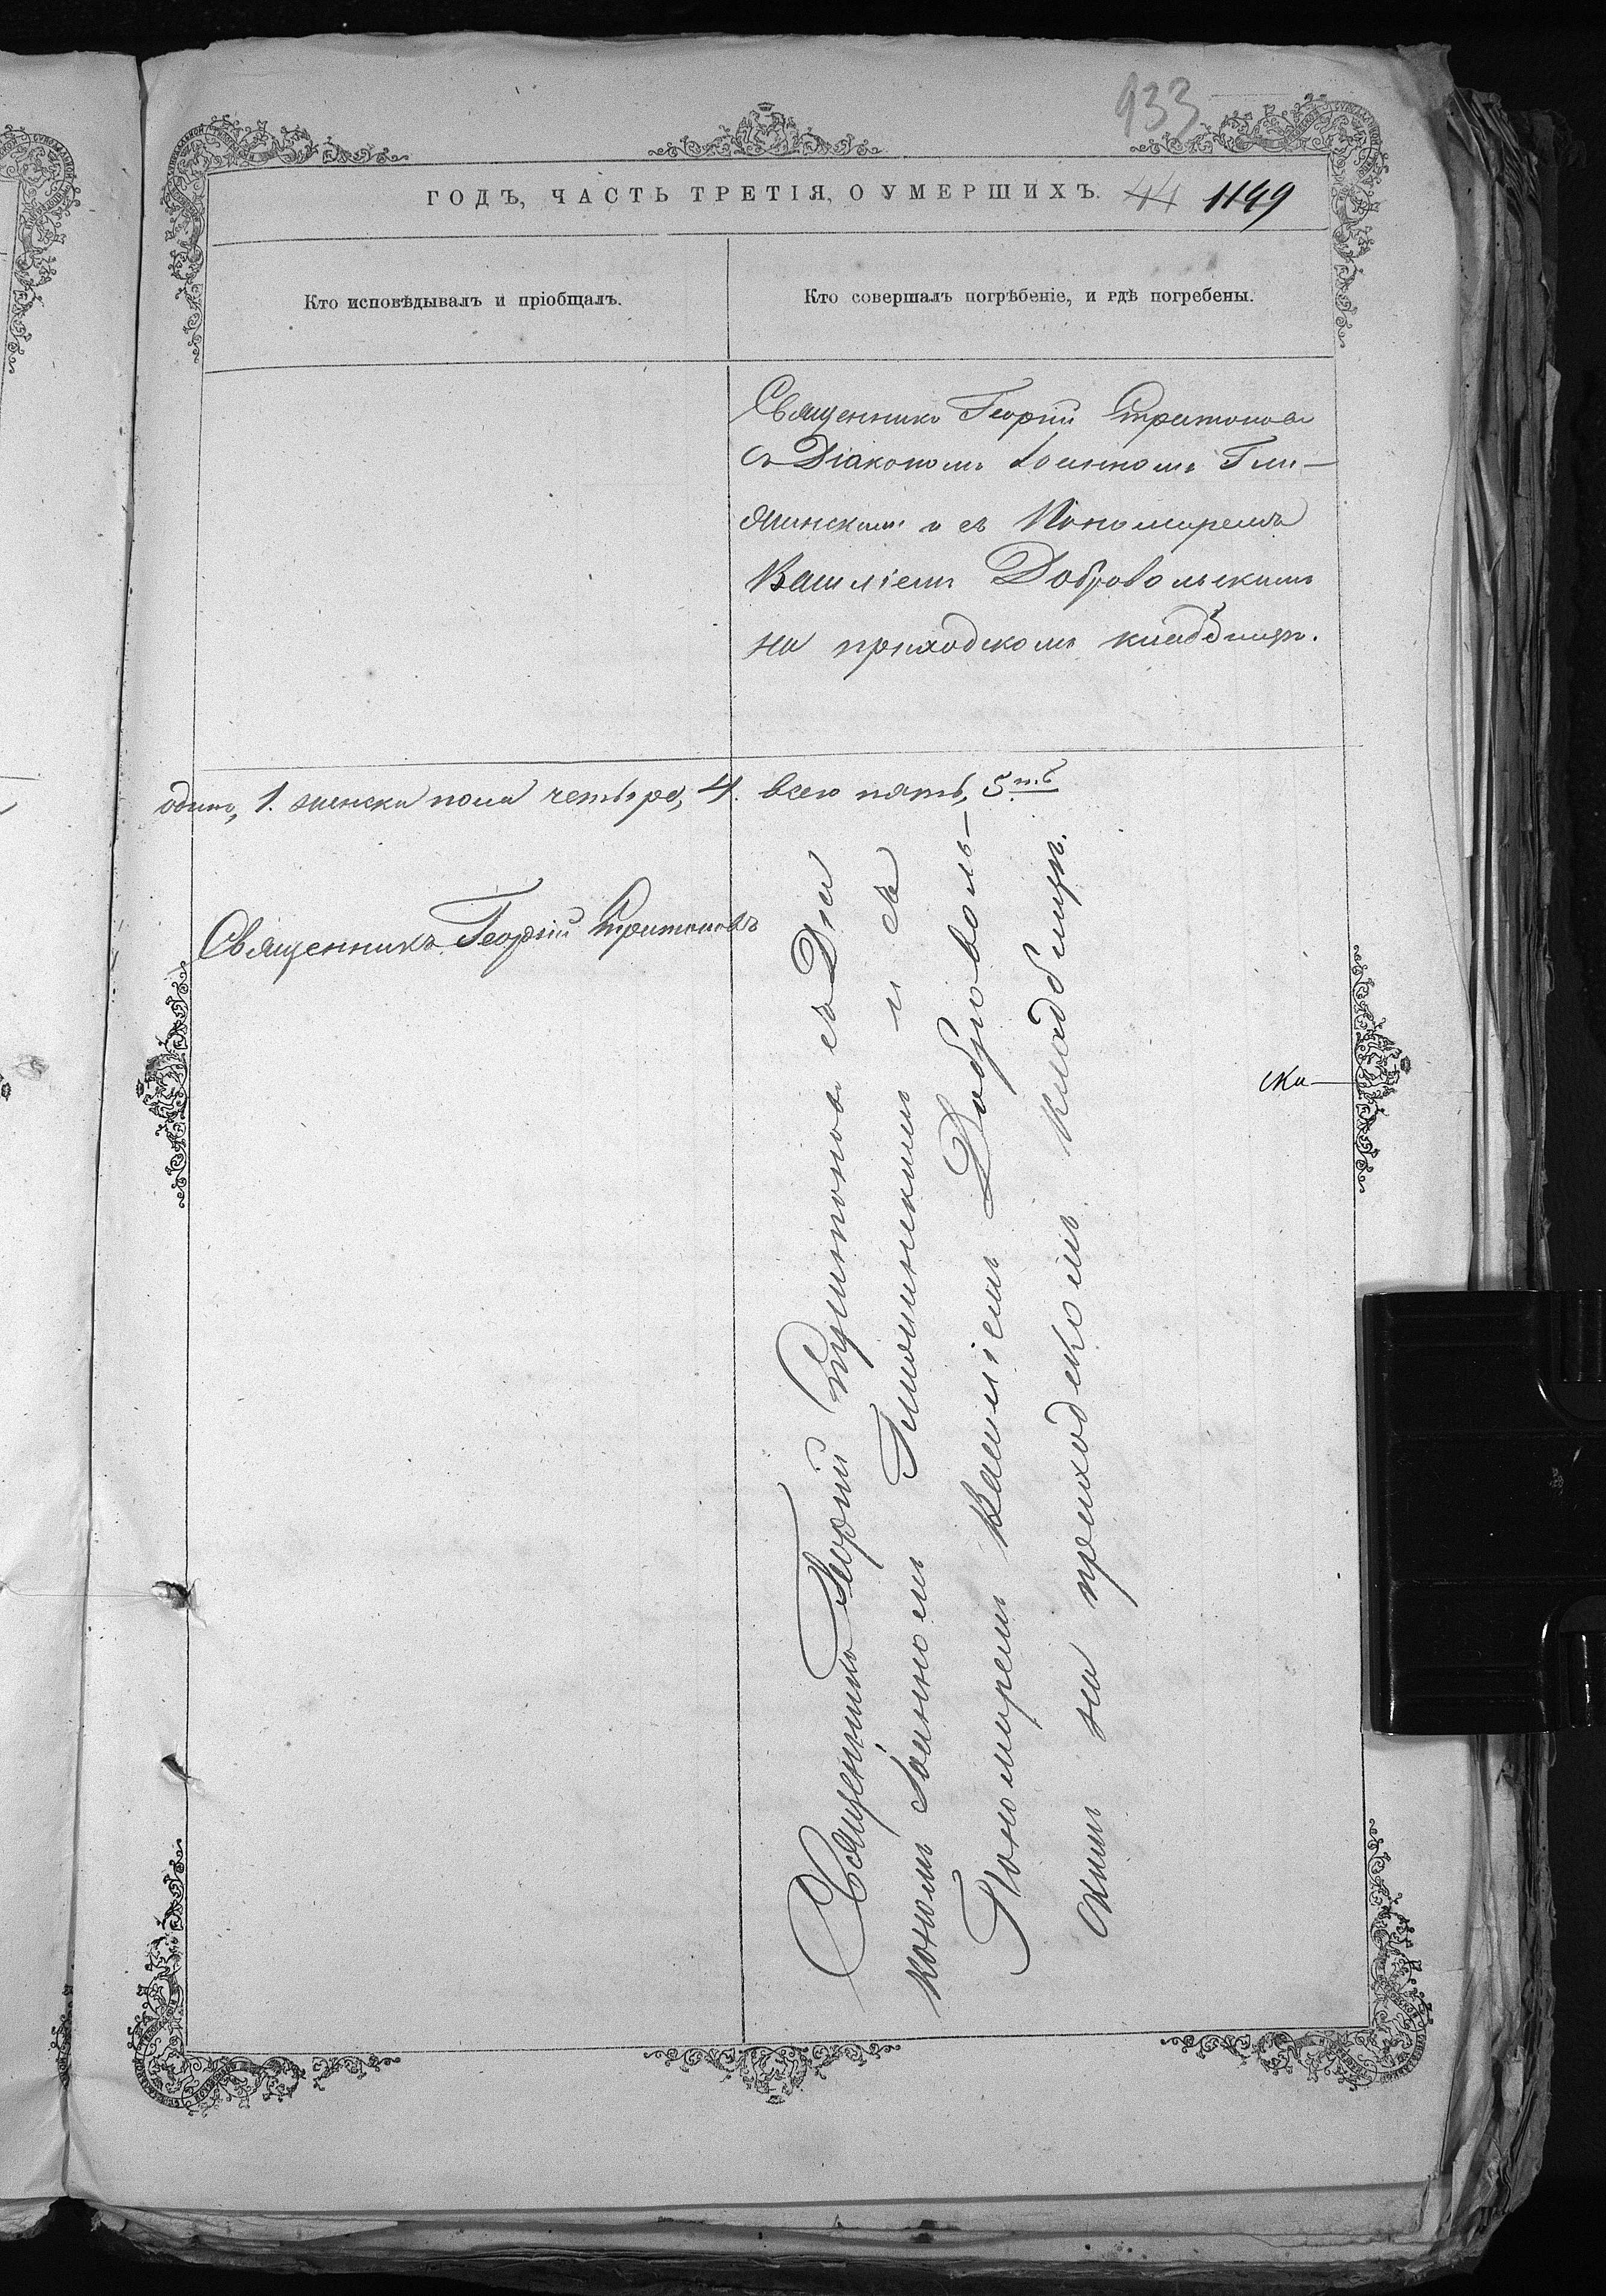 933
ГОДЪ, ЧАСТЬ ТРЕТІЯ, О УМЕРШИХЪ. 44 1149
Кто исповѣдывалъ и пріобщалъ.
Кто совершалъ погрѣбеніе, и гдѣ погребены.
Священникъ Георгій Тритоновъ
съ Діакономъ Іоанномъ
и съ Пономаремъ
Василіемъ Добровольскимъ
на приходскомъ кладбищѣ.
одинъ, 1. женска пола четыре, 4. всего пять, 5.ть
Священникъ Георгій Тритоновъ
Священникъ Георгій Тритоновъ съ Діа
кономъ Іоанномъ и съ
Пономаремъ Василіемъ Доброволь-
скимъ на приходскомъ кладбищѣ.